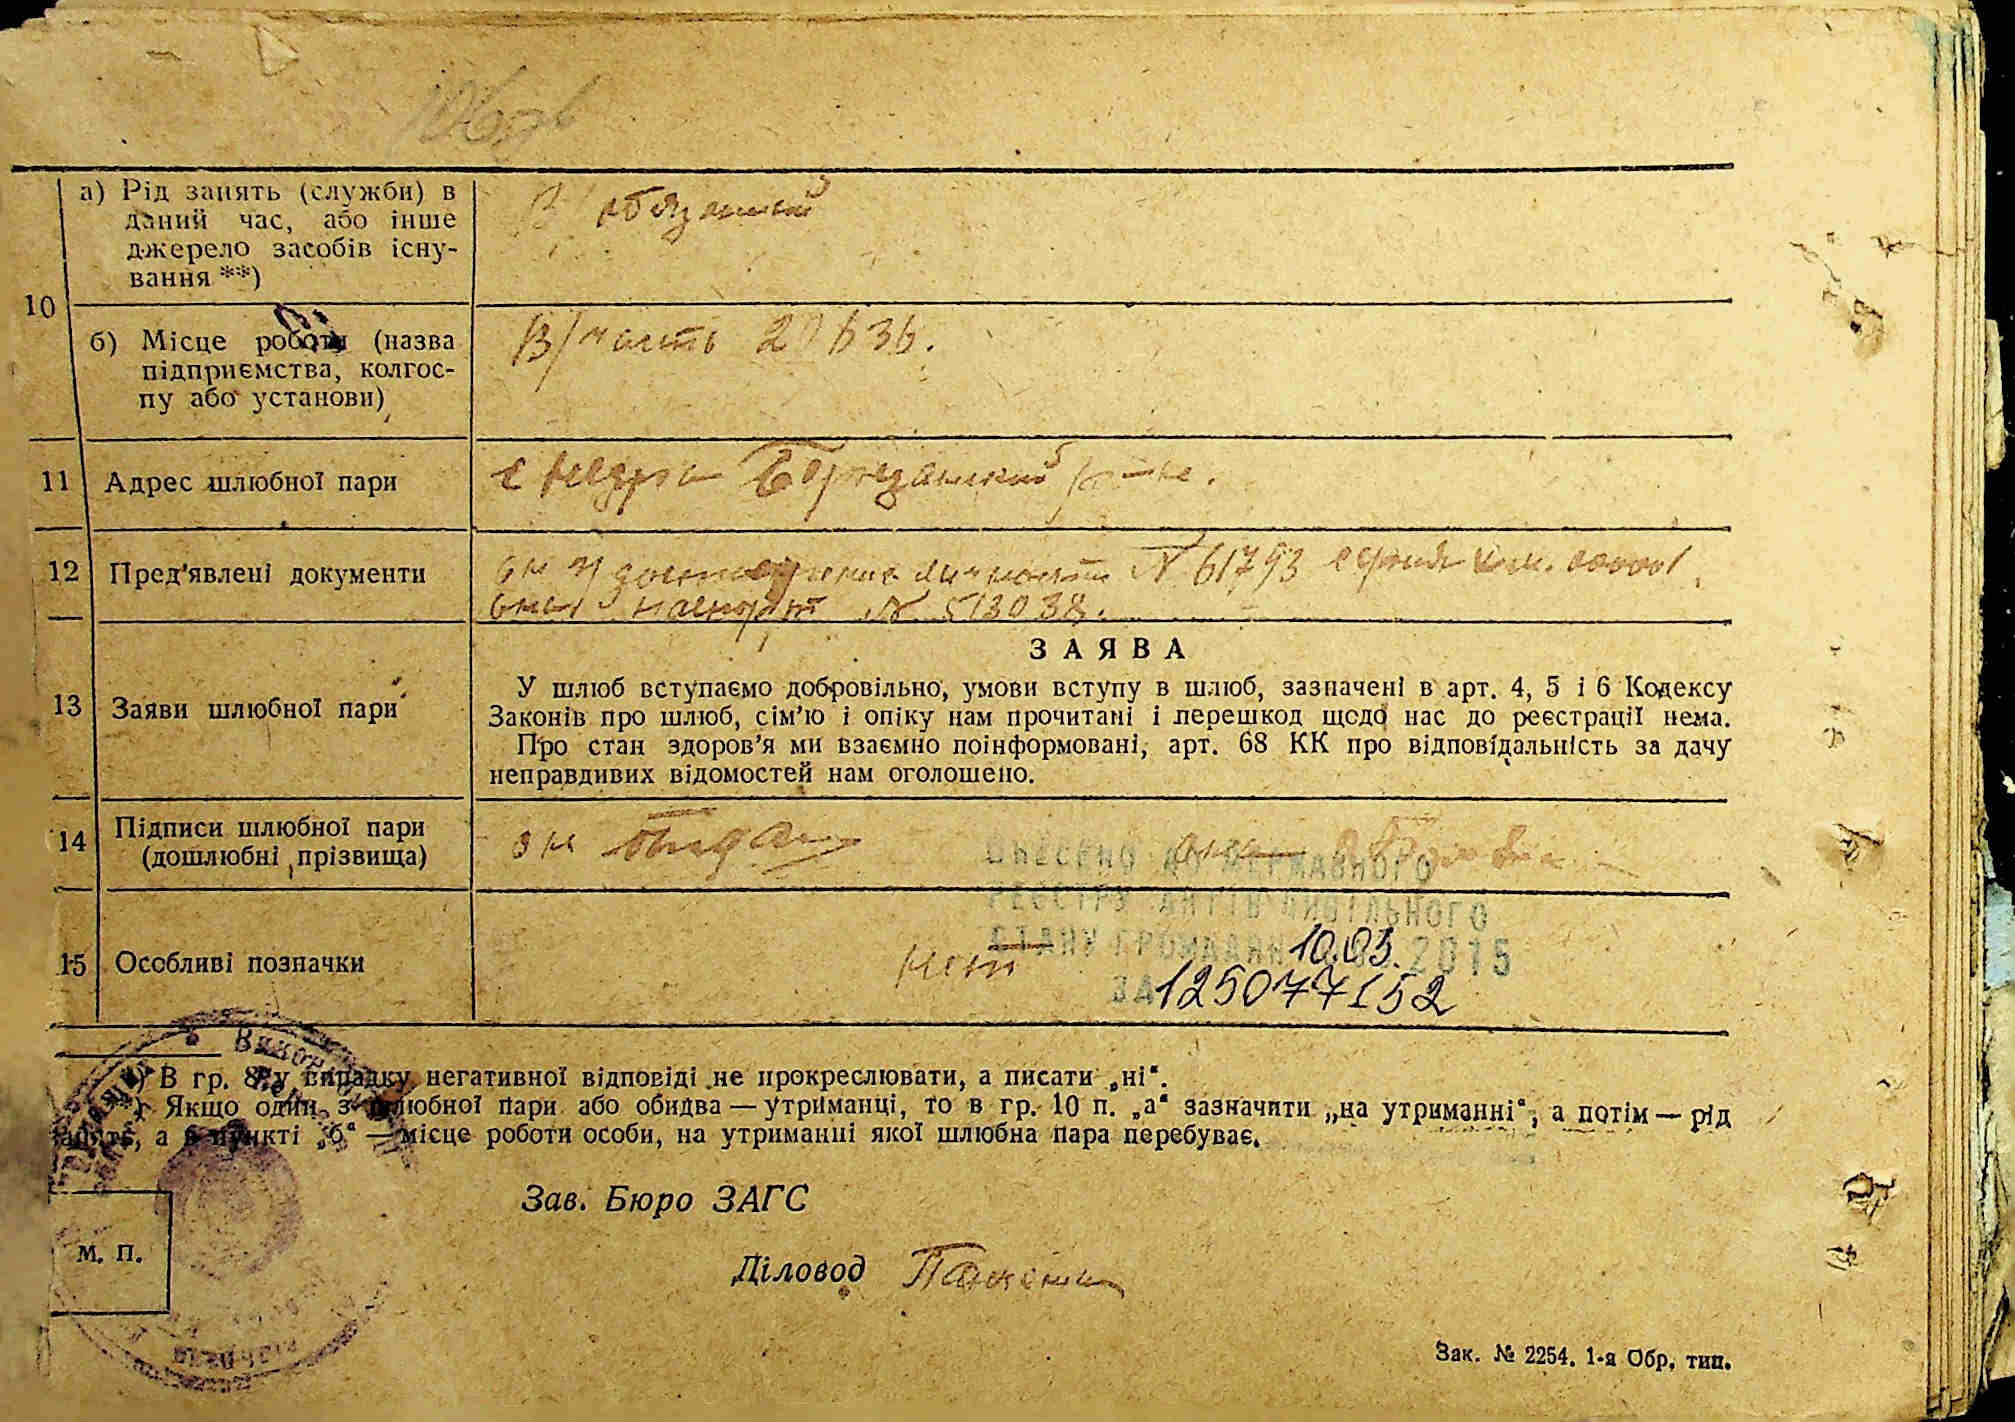 10
а) Рід занять (служби) в
даний час, або інше
джерело засобів існу-
вання **)
В/обязанный
б) Місце роботи (назва
підприємства, колгос-
пу або установи)
В/часть
11 Адрес шлюбної пари
12 Пред'явлені документи
он удостоверение личности № 61793 серия
она паспорт № 513038.
13 Заяви шлюбної пари
ЗАЯВА
У шлюб вступаємо добровільно, умови вступу в шлюб, зазначені в арт. 4, 5 і 6 Кодексу
Законів про шлюб, сім'ю і опіку нам прочитані і перешкод щодо нас до реєстрації нема.
Про стан здоров'я ми взаємно поінформовані, арт. 68 КК про відповідальність за дачу
неправдивих відомостей нам оголошено.
14 Підписи шлюбної пари
(дошлюбні прізвища)
он
она
ВНЕСЕНО ДО ДЕРЖАВНОГО
РЕЄСТРУ АКТІВ ЦИВІЛЬНОГО
СТАНУ ГРОМАДЯН 10.03.2015
ЗА 125077152
15 Особливі позначки
нет
*) В гр. 8 у випадку негативної відповіді не прокреслювати, а писати „ні“.
**) Якщо один з шлюбної пари або обидва — утриманці, то в гр. 10 п. „а“ зазначити „на утриманні“, а потім — рід
занять, а в пункті „б“ — місце роботи особи, на утриманні якої шлюбна пара перебуває.
Зав. Бюро ЗАГС
М. П.
Діловод
Зак. № 2254. 1-я Обр. тип.